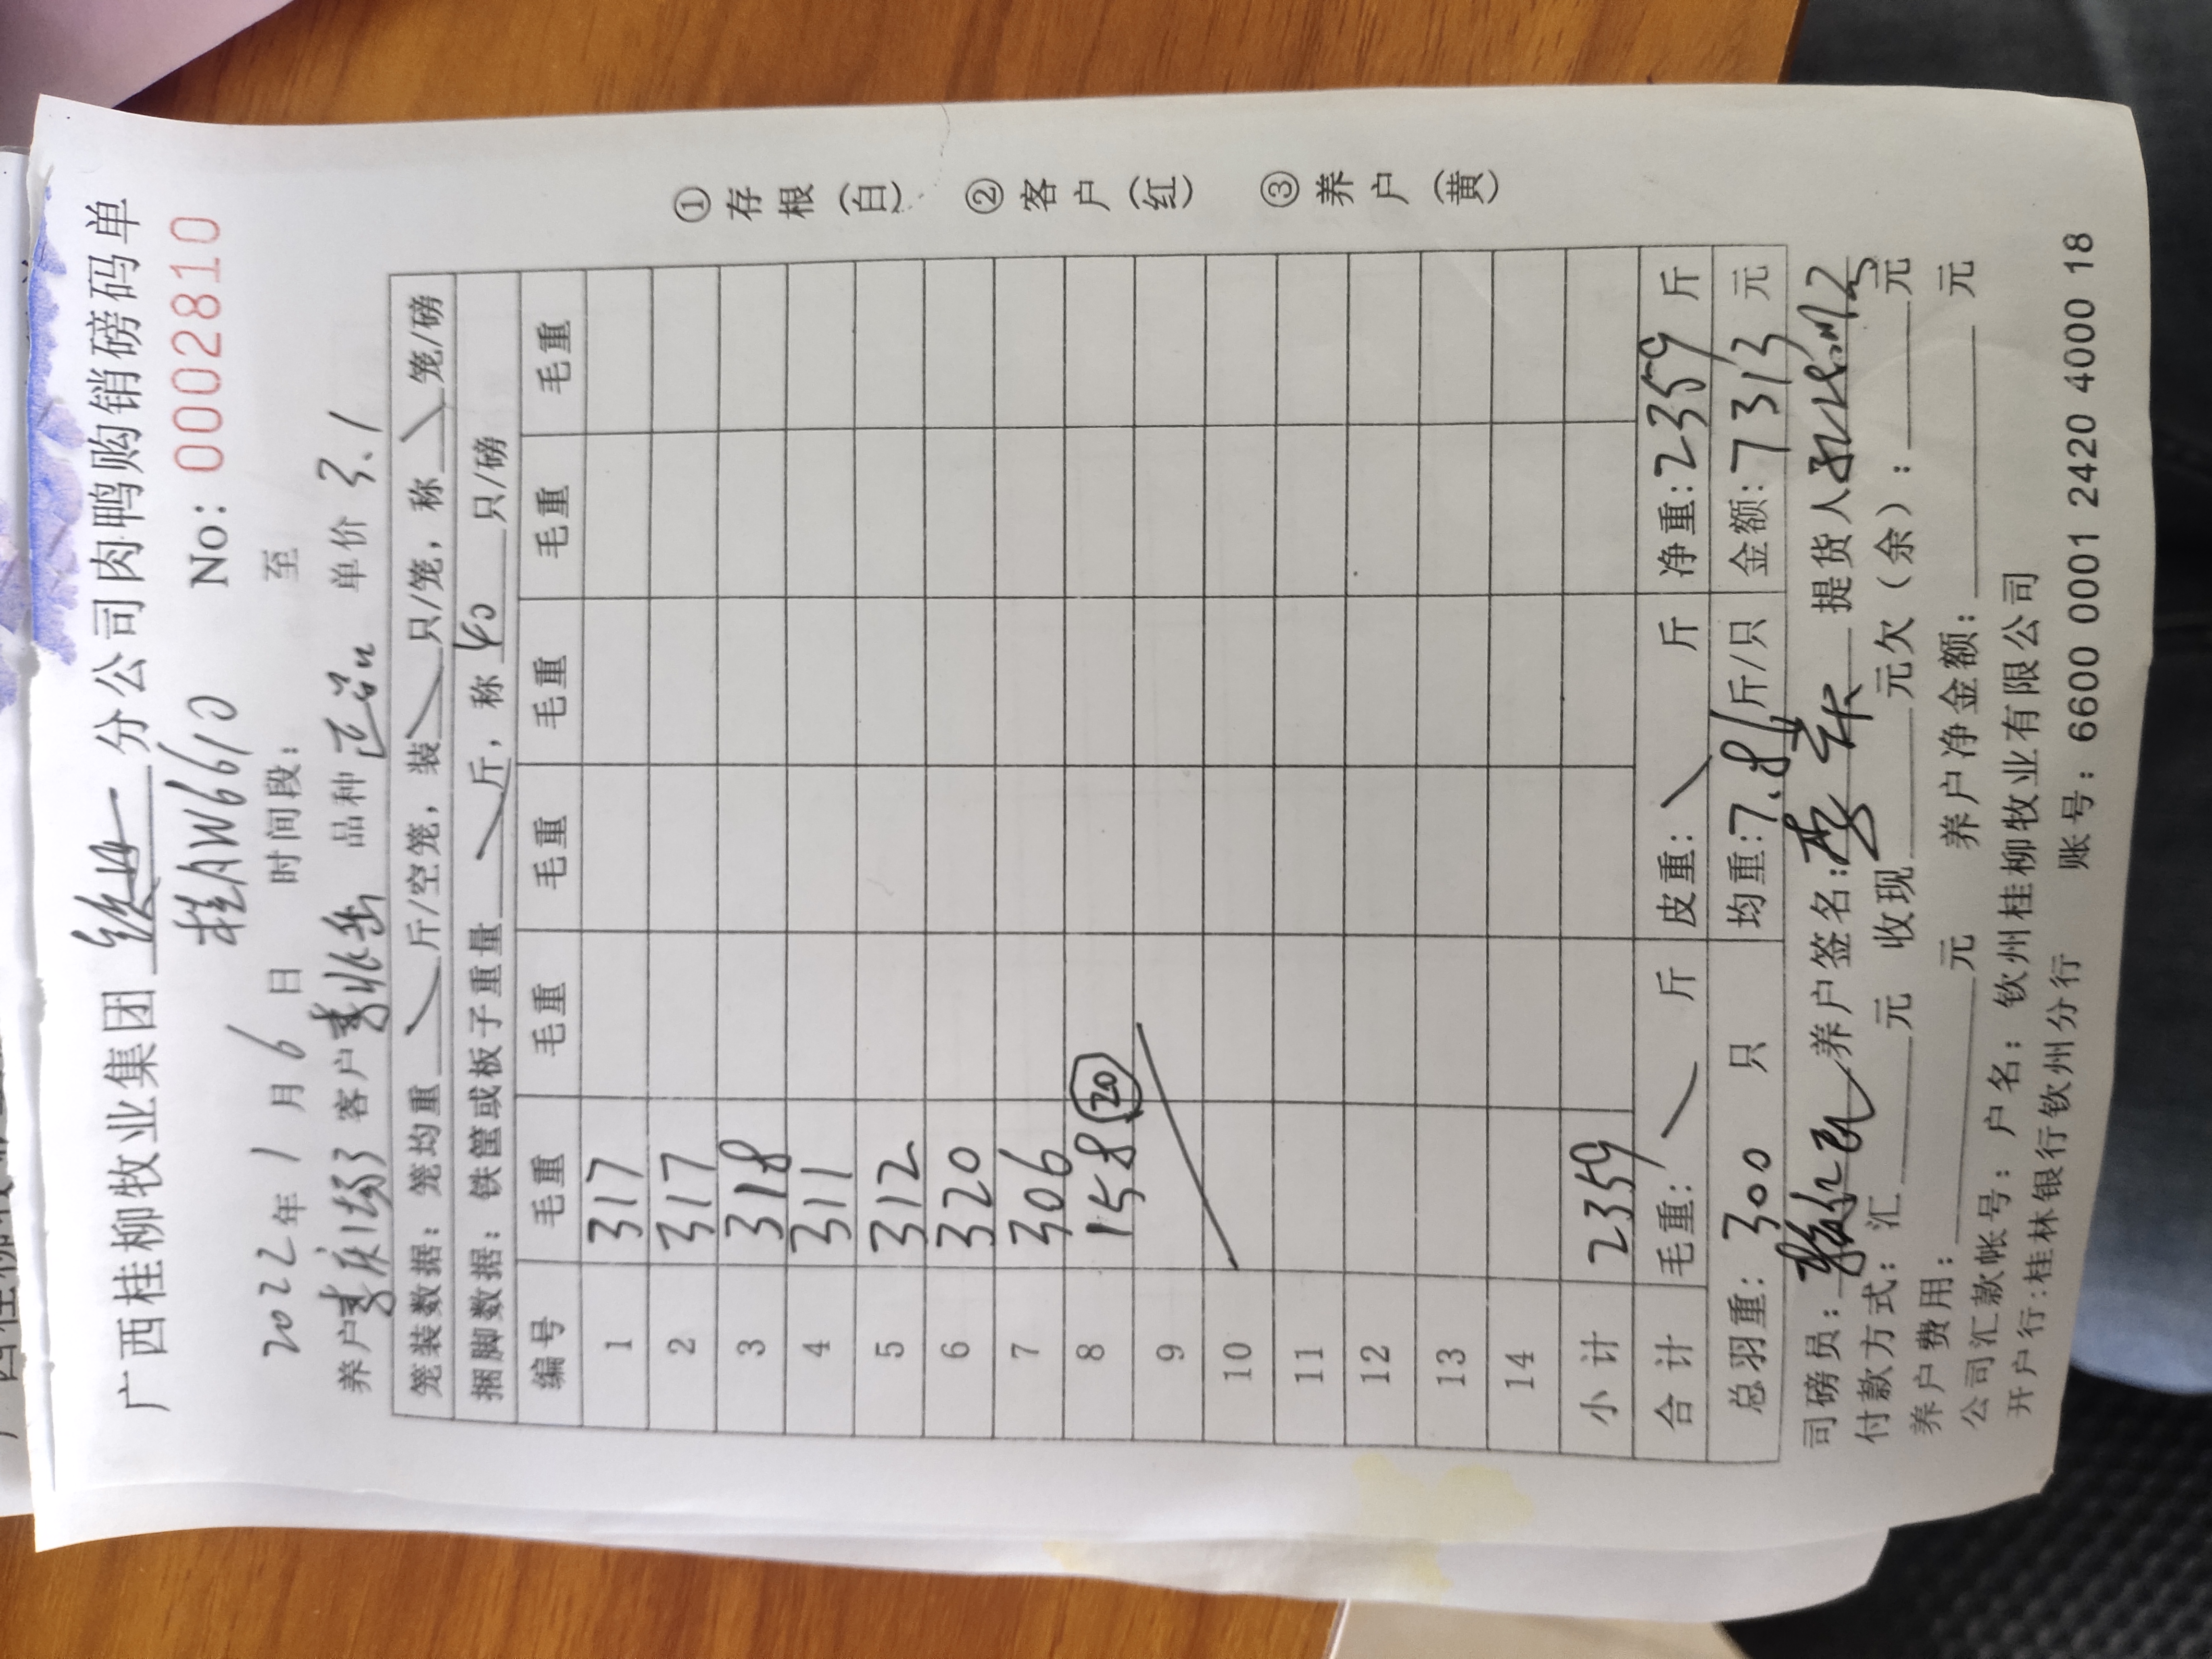 广西桂柳牧业集团 分公司肉鸭购销磅码单
桂AW6610 No: 0002810
2022年1月6日 时间段: 至
养户 客户 品种 单价 3.1
笼装数据: 笼均重 斤/空笼, 装 只/笼, 称 笼/磅
捆脚数据: 铁筐或板子重量 斤, 称 40 只/磅
编号 毛重 毛重 毛重 毛重 毛重 毛重
1 317
2 317
3 318
4 311
5 312
6 320
7 306
8 158 20
9
10
11
12
13
14
小计 2359
合计 毛重: 斤 皮重: 斤 净重: 2359 斤
总羽重: 300 只 均重: 7.86 斤/只 金额: 7313 元
司磅员: 养户签名: 提货人
付款方式: 汇 元 收现 元欠(余): 元
养户费用: 元 养户净金额: 元
公司汇款帐号: 户名: 钦州桂柳牧业有限公司
开户行:桂林银行钦州分行 账号: 6600 0001 2420 4000 18
①存根(白) ②客户(红) ③养户(黄)